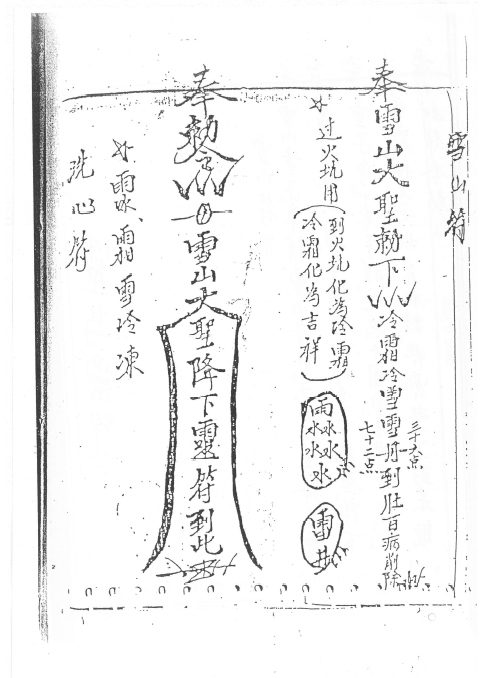 雪山符
奉雪山大聖勅下冷霜冷雪雪丹到肚百病削除
三十六点
七十二点
过火坑用
(到火坑化為冷霜
冷霜化為吉祥)
雨水水水水水
雷井
奉勅令
雪山大聖降下靈符到此
雨水、霜雪冷凍
洗心符